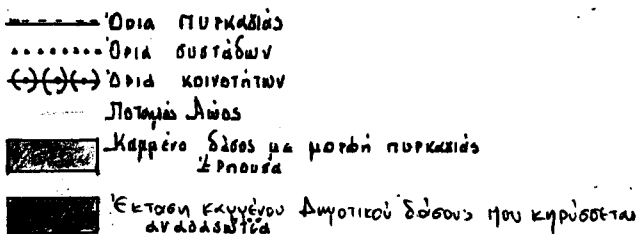 Όρια πυρκαϊάς
Όρια συστάδων
Όρια κοινοτήτων
Ποταμός Αώος
Καμμένο δάσος με μορφή πυρκαϊάς
έρπουσα
Έκταση καμμένου Δημοτικού δάσους που κηρύσσεται
αναδασωτέα